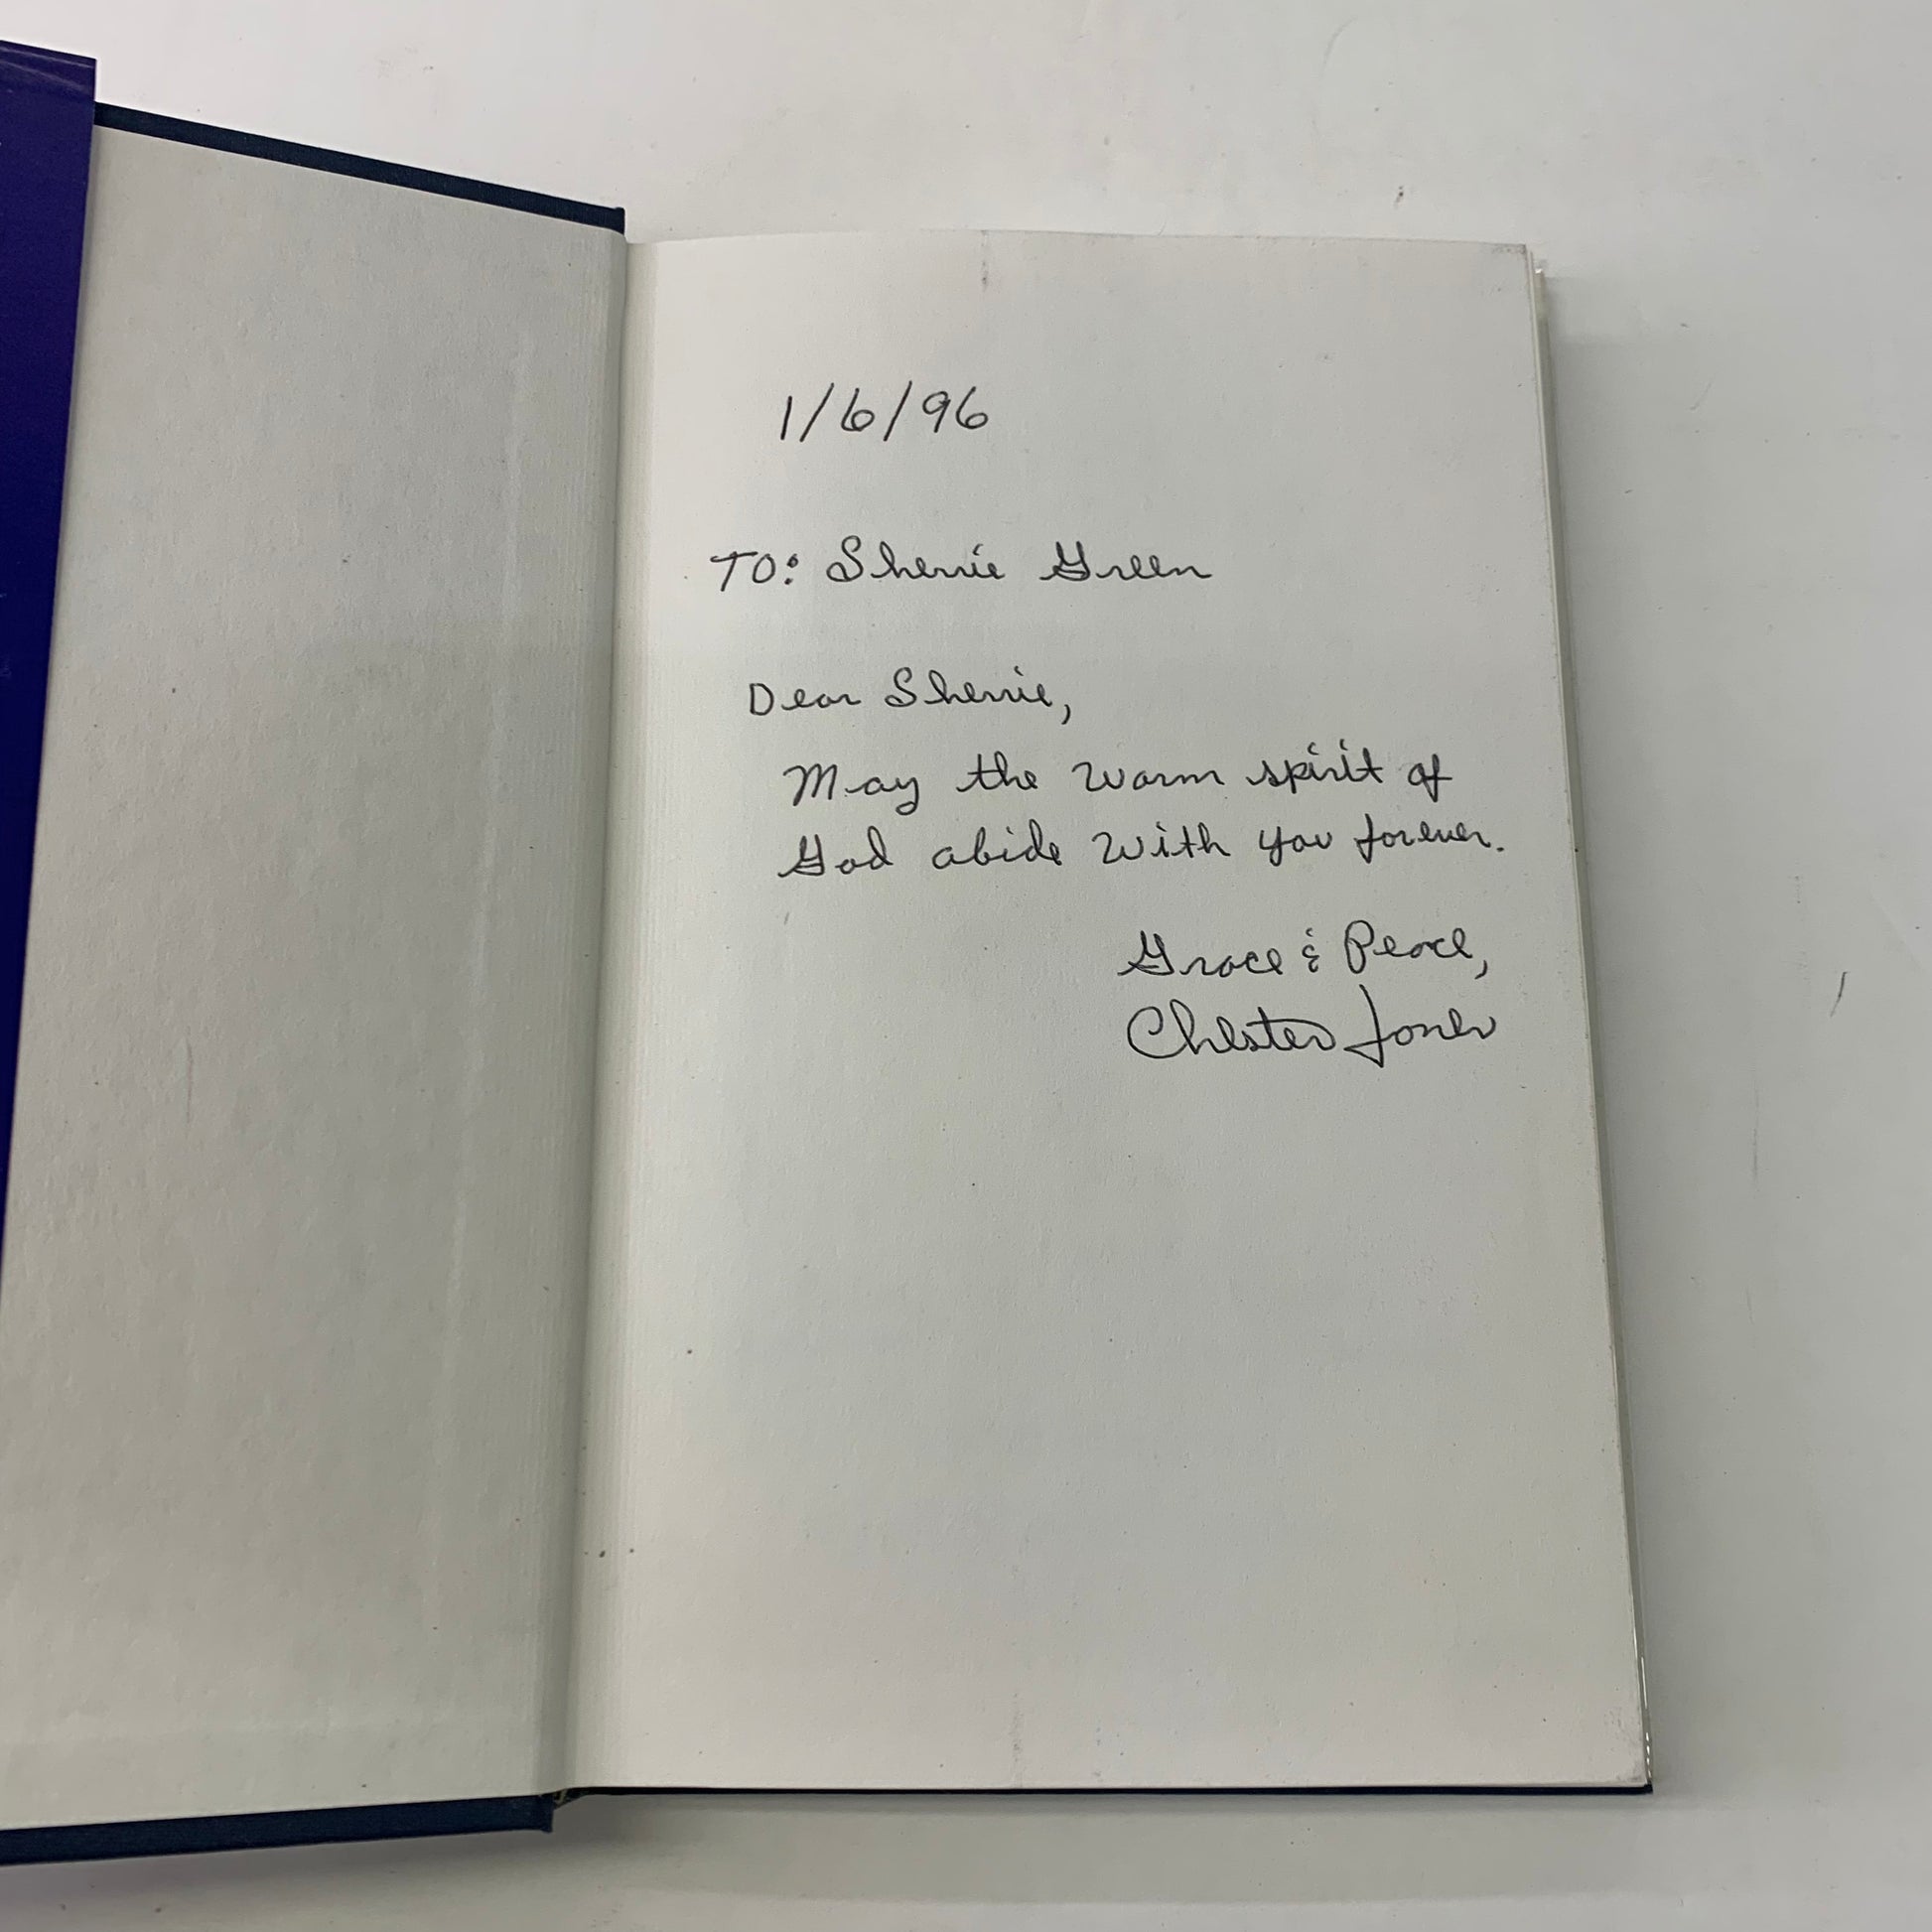 1/6/96
TO: Sherrie Green
Dear Sherrie,
May the warm spirit of
God abide with you forever.
Grace & Peace,
Chester Jones